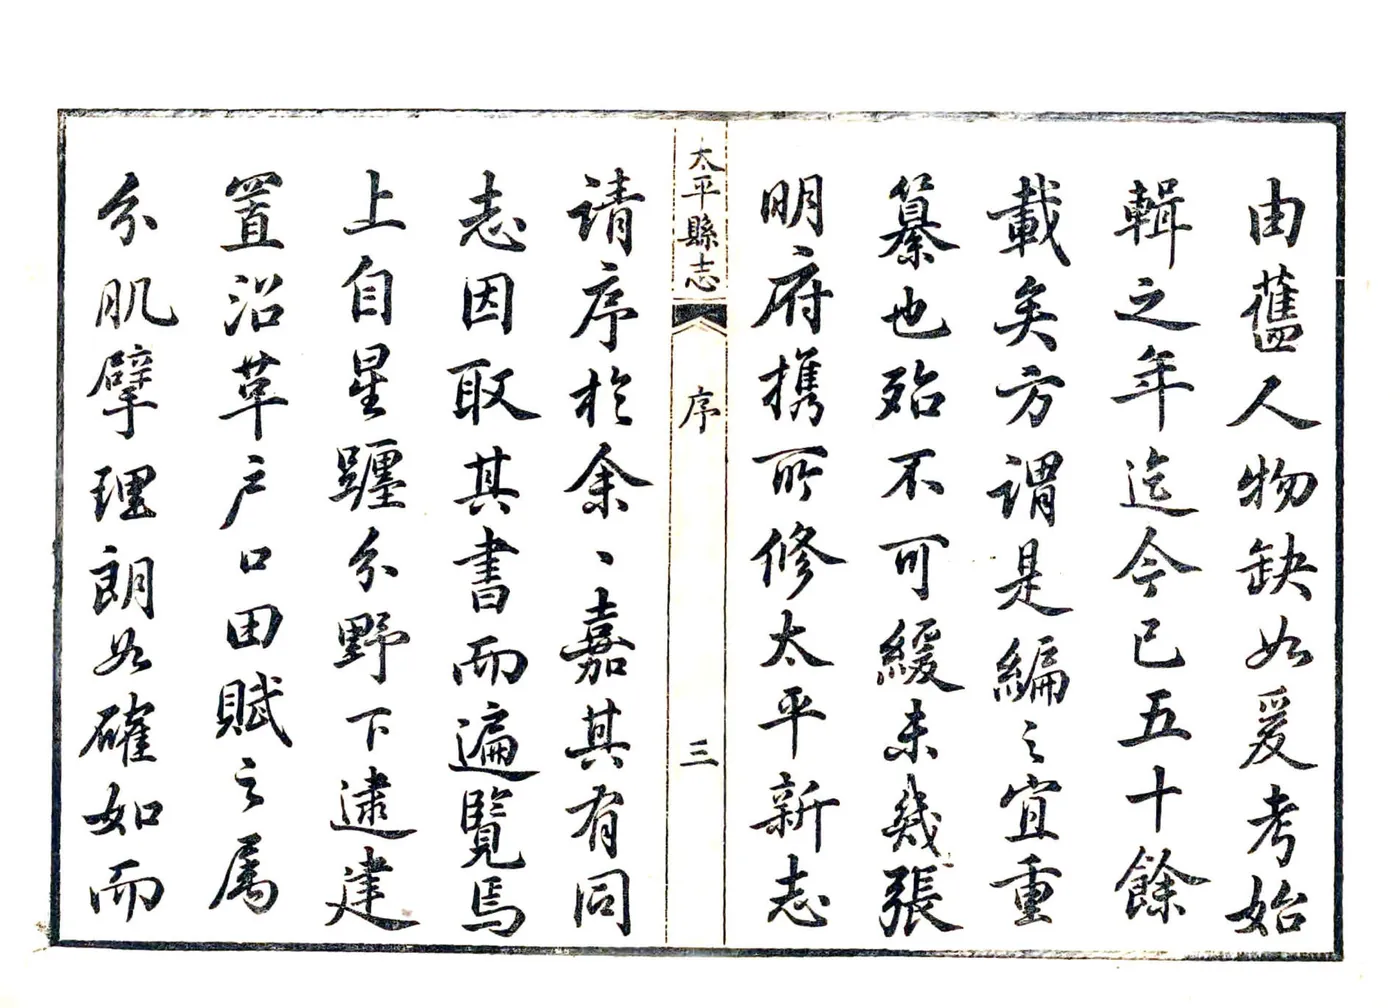 由舊人物缺如爰考始
輯之年迄今已五十餘
載矣方謂是編之宜重
纂也殆不可緩未幾張
明府攜所修太平新志
太平縣志
序
三
請序於余〻嘉其有同
志因取其書而遍覽焉
上自星躔分野下逮建
置沿革戶口田賦之屬
分肌擘理朗如確如而